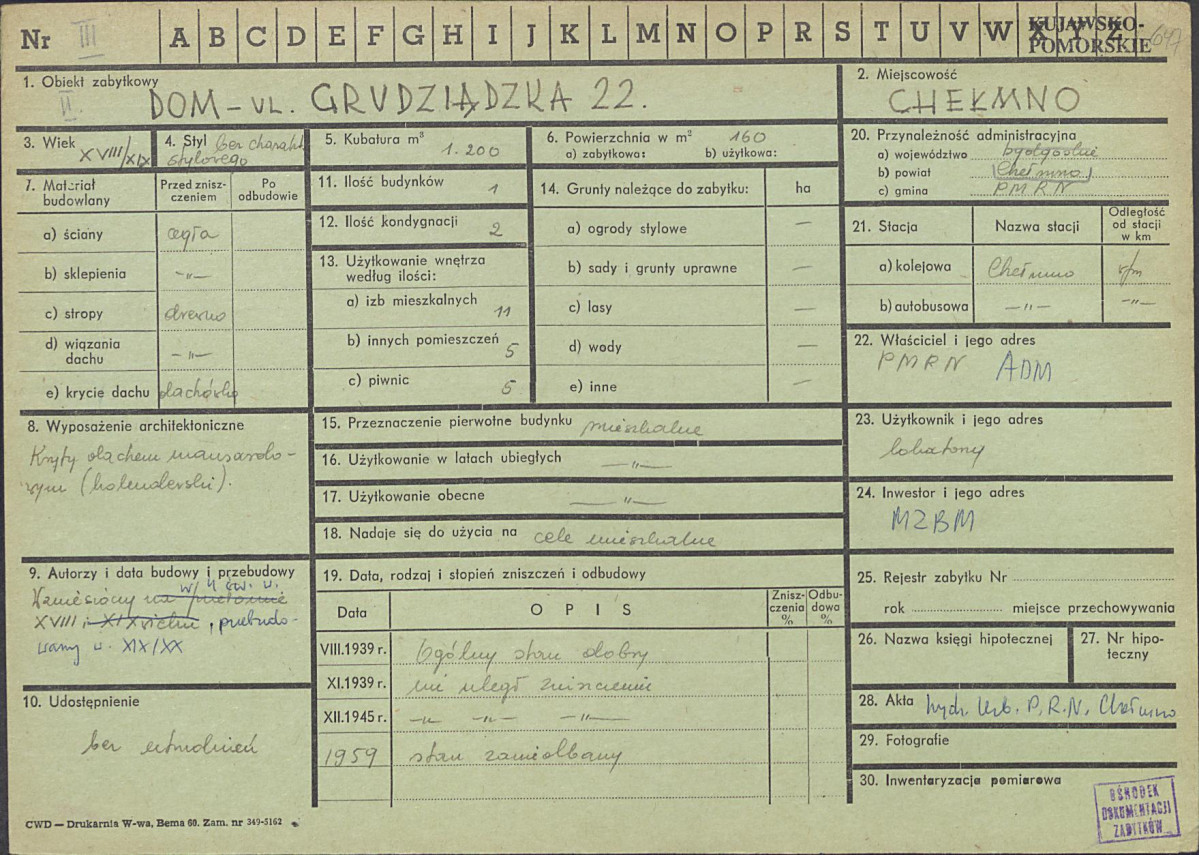 Nr III A B C D E F G H I J K L M N O P R S T U V W X Y Z
KUJAWSKO-
POMORSKIE 647
1. Obiekt zabytkowy
II. DOM - UL. GRUDZIĄDZKA 22.
2. Miejscowość
CHEŁMNO
3. Wiek
XVIII/XIX
4. Styl bez charakt
stylowego
5. Kubatura m³
1.200
6. Powierzchnia w m² 160
a) zabytkowa: b) użytkowa:
20. Przynależność administracyjna
a) województwo bydgoskie
b) powiat Chełmno
c) gmina PMRN
7. Materiał
budowlany
Przed znisz-
czeniem
Po
odbudowie
a) ściany cegła
b) sklepienia -„-
c) stropy drewno
d) wiązania
dachu -„-
e) krycie dachu dachówka
11. Ilość budynków 1
12. Ilość kondygnacji 2
13. Użytkowanie wnętrza
według ilości:
a) izb mieszkalnych 11
b) innych pomieszczeń 5
c) piwnic 5
14. Grunty należące do zabytku: ha
a) ogrody stylowe —
b) sady i grunty uprawne —
c) lasy —
d) wody —
e) inne —
21. Stacja Nazwa stacji
Odległość
od stacji
w km
a) kolejowa Chełmno
b) autobusowa -„- -„-
22. Właściciel i jego adres
PMRN ADM
8. Wyposażenie architektoniczne
Kryty dachem mansardo-
wym (holenderski).
15. Przeznaczenie pierwotne budynku mieszkalne
16. Użytkowanie w latach ubiegłych -„-
17. Użytkowanie obecne -„-
18. Nadaje się do użycia na cele mieszkalne
23. Użytkownik i jego adres
lokatorzy
24. Inwestor i jego adres
MZBM
9. Autorzy i data budowy i przebudowy
w 4 ćw. w.
Wzniesiony na przełomie
XVIII i XIX wieku, przebudo-
wany w. XIX/XX
10. Udostępnienie
bez utrudnień
19. Data, rodzaj i stopień zniszczeń i odbudowy
Data OPIS
Znisz-
czenia
%
Odbu-
dowa
%
VIII.1939 r. Ogólny stan dobry
XI.1939 r. nie uległ zniszczeniu
XII.1945 r. -„- -„- -„-
1959 stan zaniedbany
25. Rejestr zabytku Nr
rok miejsce przechowywania
26. Nazwa księgi hipotecznej
27. Nr hipo-
teczny
28. Akta P.R.N. Chełmno
29. Fotografie
30. Inwentaryzacja pomiarowa
OŚRODEK
DOKUMENTACJI
ZABYTKÓW
CWD — Drukarnia W-wa, Bema 60. Zam. nr 349-5162